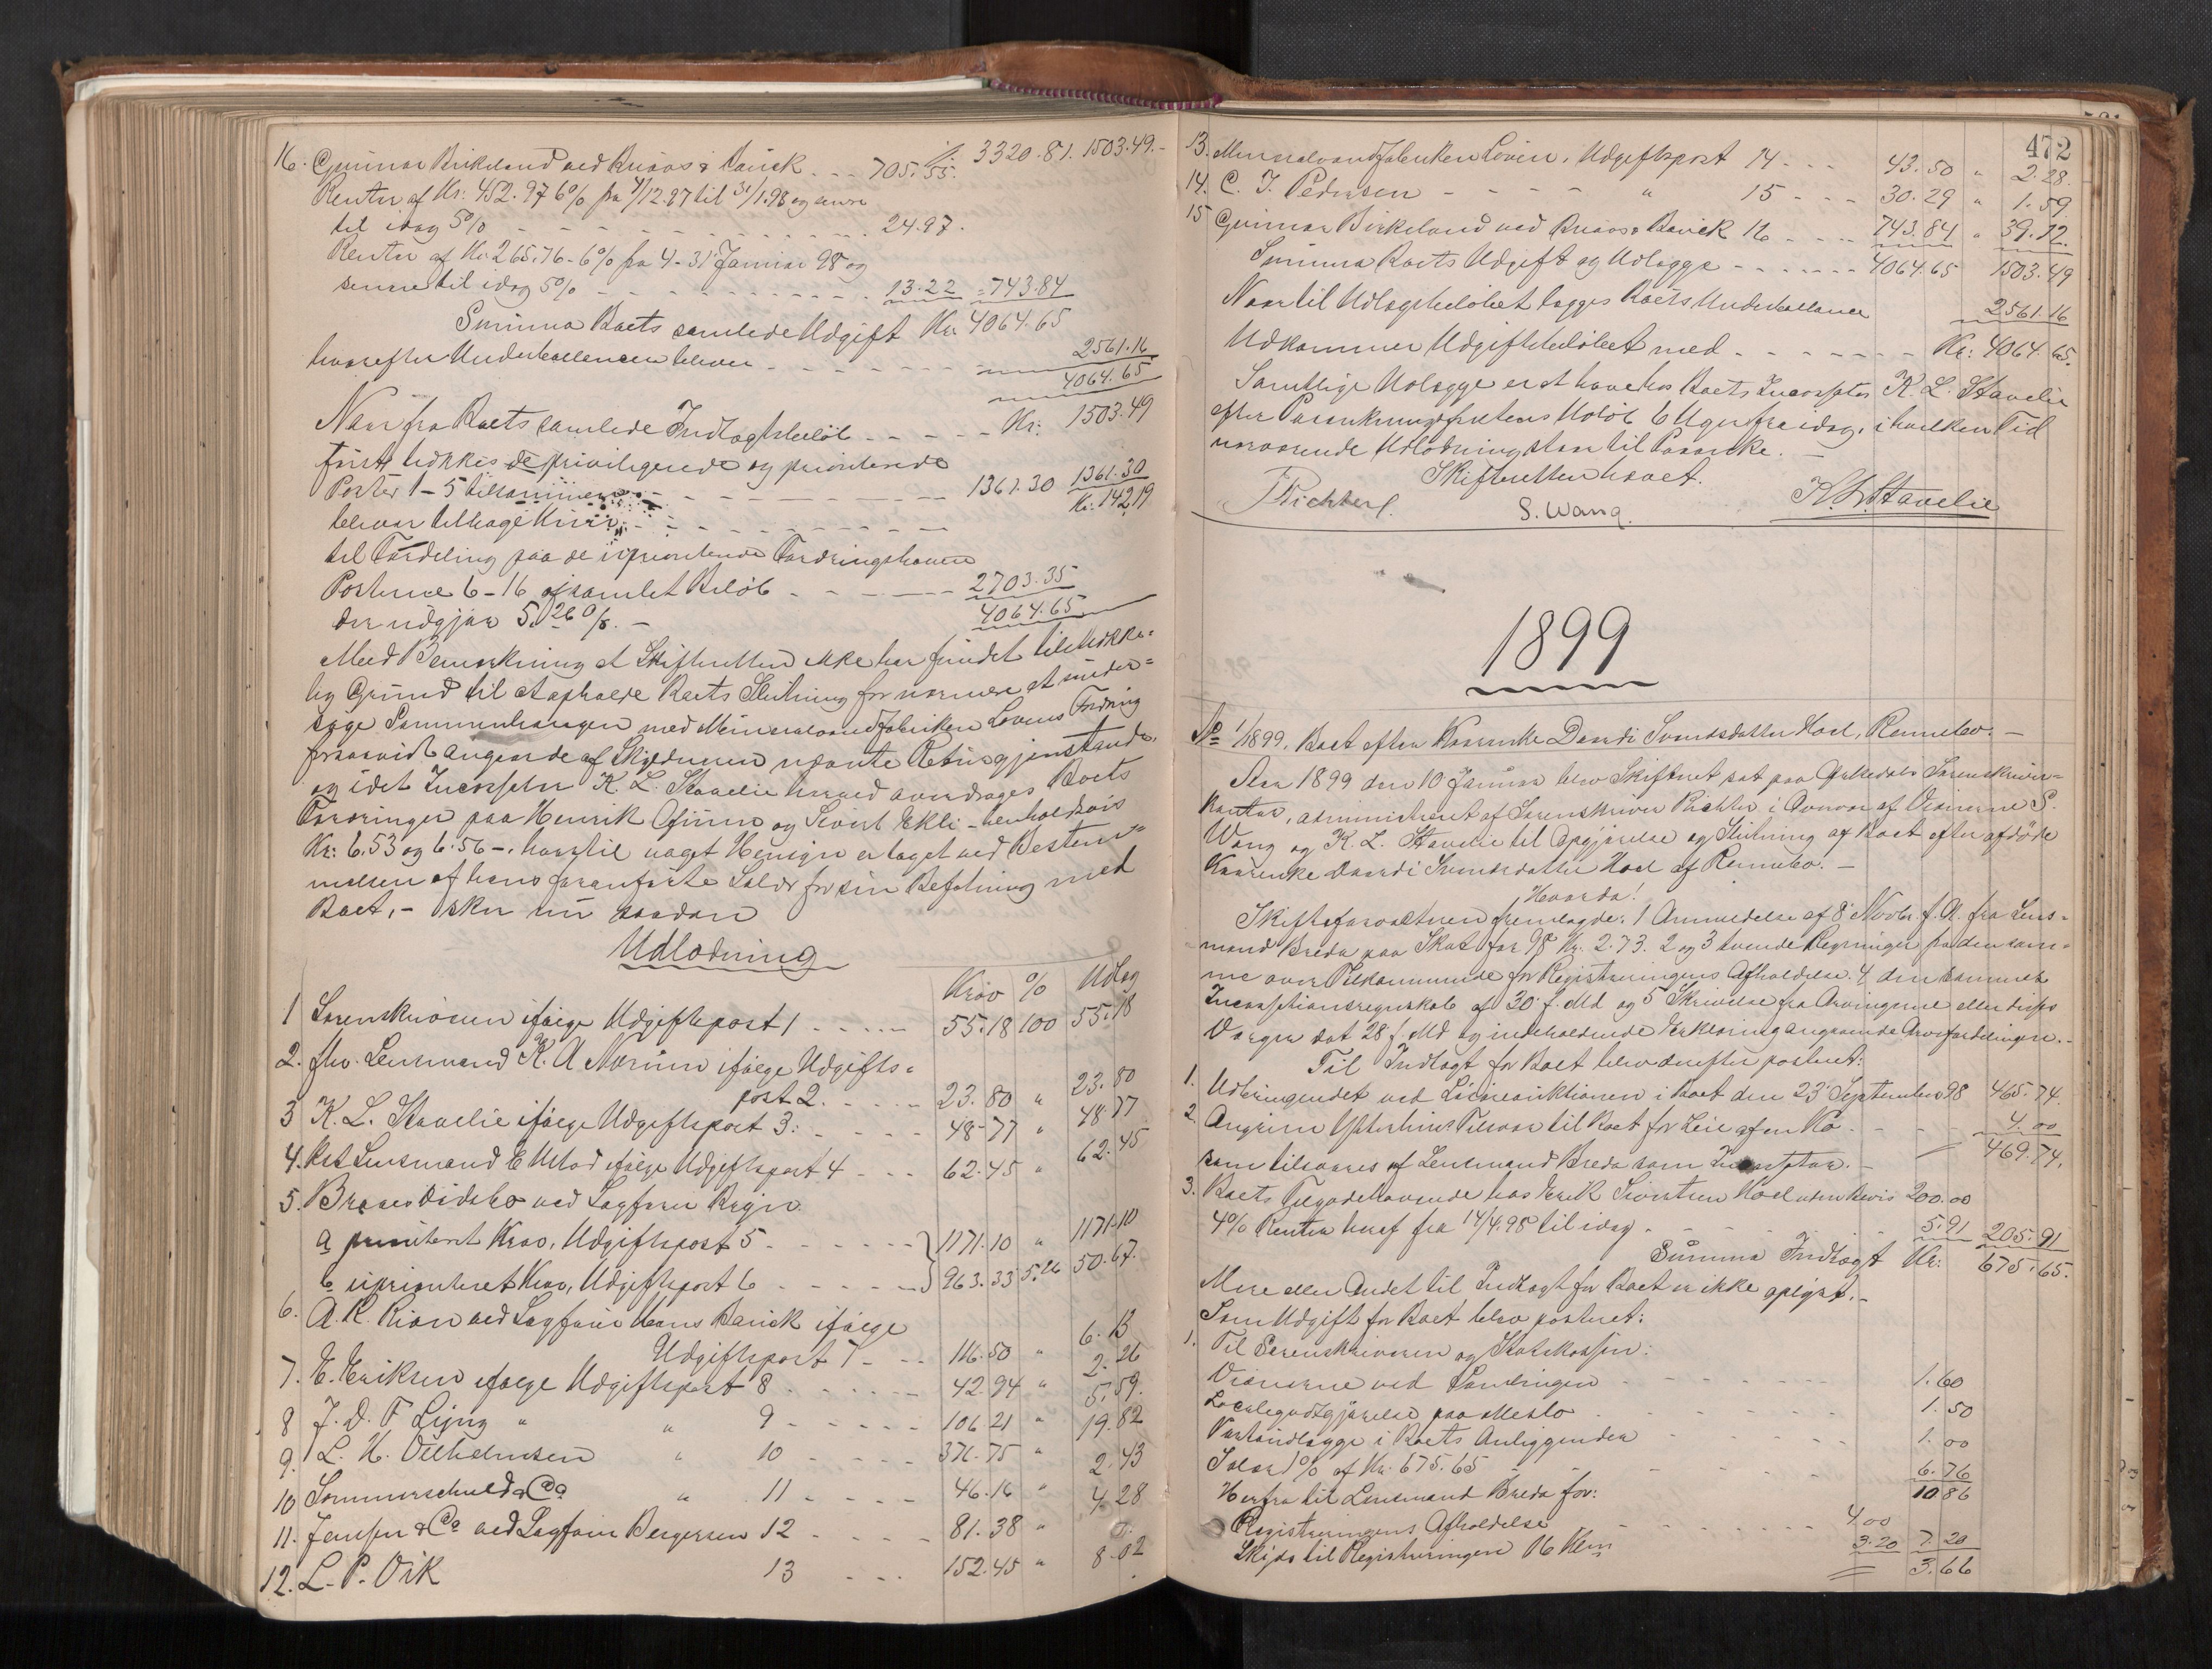 % 3320.81. 1503.49.-
16. Gunnar Birkeland ved Knoos & Barick . . . 705.55.
Renter af Kr. 452.97 6% fra 4/12.97 til 31/1.98 og senere
til idag 5% - - - - - - 24.97.
Renter af Kr. 265.76 - 6% fra 4-31 Januar 98 og
senere til idag 5% - - - - 13.22 = 743.84
Summa Boets samlede Udgift Kr. 4064.65
hvorefter Underballancen bliver - - - - 2561.16
4064.65
Naar fra Boets samlede Indtægtsbeløb - - - - - Kr: 1503.49
først trækkes de priviligerede og prioriterede
Poster 1-5 tilsammen - - - - 1361.30 1361.30
bliver tilbage Kun - - - - Kr. 142.19
til Fordeling paa de uprioriterede Fordringshavere
Posterne 6-16 af samlet Beløb - - - - 2703.35
4064.65
der udgjør 5.26%. -
Med Bemærkning at Skifteretten ikke har fundet tilstrække=
lig Grund til at opholde Boets Slutning for nærmere at under=
søge Sammenhængen med Mineralvandfabriken Lovens Fordring
forsaavidt angaaende af Skyldneren nævnte Returgjenstande,
og idet Incassator K. L. Stavelie herved overdrages Boets
Fordringer paa Henrik Grinn og Sivert Ekli - henholdsvis
Kr: 6.53 og 6.56 -, hvortil noget Hensyn er taget ved Bestem=
melsen af hans foranførte Salær for sin Befatning med
Boet, - sker nu saadan
Udlodning
Krav % Udlæg
1 Sorenskriveren ifølge Udgiftspost 1 . . . . . 55.18 100 55.18
2. fhv. Lensmand K. A Nærum ifølge Udgifts=
post 2. - - - - 23.80 " 23.80
3 K. L. Stavelie ifølge Udgiftspost 3: - - - - 48.77 " 48.77
4. Kst Lensmand E Ustad ifølge Udgiftspost 4 - - - 62.45 " 62.45
5. Broses Dødsbo ved Sagfører Bryn
a prioriteret Krav, Udgiftspost 5 - - - - - 1171.10 " 1171.10
b uprioriteret Krav, Udgiftspost 6 - - - - - 963.33 5.26 50.67.
6. A. R. Rian ved Sagfører Hans Barick ifølge
Udgiftspost 7 - - - 116.50 " 6.13
7. E. Eriksen ifølge Udgiftspost 8 . . . . . . 42.94 " 2.26
8 J. D. F Lyng " " 9 - - - - - 106.21 " 5.59.
9. L. H. Vilhelmsen " 10 . . . . . 376.75 " 19.82
10 Sommerschield & Co " 11 . . . . 46.16 " 2.43
11. Jenssen & Co ved Sagfører Bergersen 12 - - - 81.38 " 4.28
12. L. P. Vik 13 . . . 152.45 " 8.02
472
13. Mineralvandfabriken Loven, Udgiftspost 14 - - - 43.50 " 2.28.
14. C. J. Pedersen - - - - " 15 - - - 30.29 " 1.59
15 Gunnar Birkeland ved Knoos & Barick 16 - - - 743.84 " 39.12.
Summa Boets Udgift og Udlægge - - - - - - - 4064.65 1503.49
Naar til Udlægsbeløbet lægges Boets Underballance 2561.16
Udkommer Udgiftsbeløbet med - - - - - - - Kr: 4064.65.
Samtlige Udlægge er at hæve hos Boets Incassator K. L. Stavelie
efter Paaankningsfristens Udløb 6 Uger fra idag, i hvilken Tid
nærværende Udlodning staar til Paaanke. -
Skifteretten hævet.
Richter S. Wang. K. L. Stavelie
1899
No 1/1899. Boet efter Kaarenke Dordi Svendsdatter Hoel, Rennebo. -
Aar 1899 den 10 Januar blev Skifteret sat paa Orkedals Sorenskriver=
kontor, administreret af Sorenskriver Richter i Overvær af Vidnerne S.
Wang og K. L. Stavelie til Opgjørelse og Slutning af Boet efter afdøde
Kaarenke Dordi Svendsdatter Hoel af Rennebo. -
Hvorda!
Skifteforvalteren fremlagde: 1 Anmeldelse af 8 Novbr. f. A. fra Lens=
mand Breda paa Skat for 98 Kr. 2.73. 2 og 3 tvende Regninger fra den sam=
me over Tilkommende for Registreringens Afholdelse. 4 den sammes
Incassationsregnskab af 30 f. Md og 5 Skrivelse fra Arvingerne eller disses
Værger dat 28 f. Md og indeholdende Erklæring angaaende Arvefordelingen. -
Til Indtægt for Boet blev derefter posteret:
1. Udbringendet ved Løsøreauktionen i Boet den 23 September 98 465.74.
2. Angrim Ytterhus Tilsvar til Boet for Leie af en Ko - - - - 4.00
som tilsvares af Lensmand Breda som Incassator. - 469.74.
3. Boets Tilgodehavende hos Erik Sivertsen Hoel uden Bevis 200.00
4% Renter heraf fra 14/4.98 til idag - - - - 5.91 205.91
Summa Indtægt Kr: 675.65.
Mere eller Andet til Indtægt for Boet er ikke oplyst. -
Som Udgift for Boet blev posteret:
1. Til Sorenskriveren og Statskassen:
Vidnerne ved Samlingen - - - - - - - 1.60
Localegodtgjørelse paa Meslo - - - - - 1.50
Portoudlægge i Boets Anliggender - - - - - 1.00
Salær 1% af Kr. 675.65 - - - - - 6.76
Herfra til Lensmand Breda for: 10.86
Registreringens Afholdelse - - - - - 4.00
Skyds til Registreringen 16 Klm 3.20 7.20
3.66